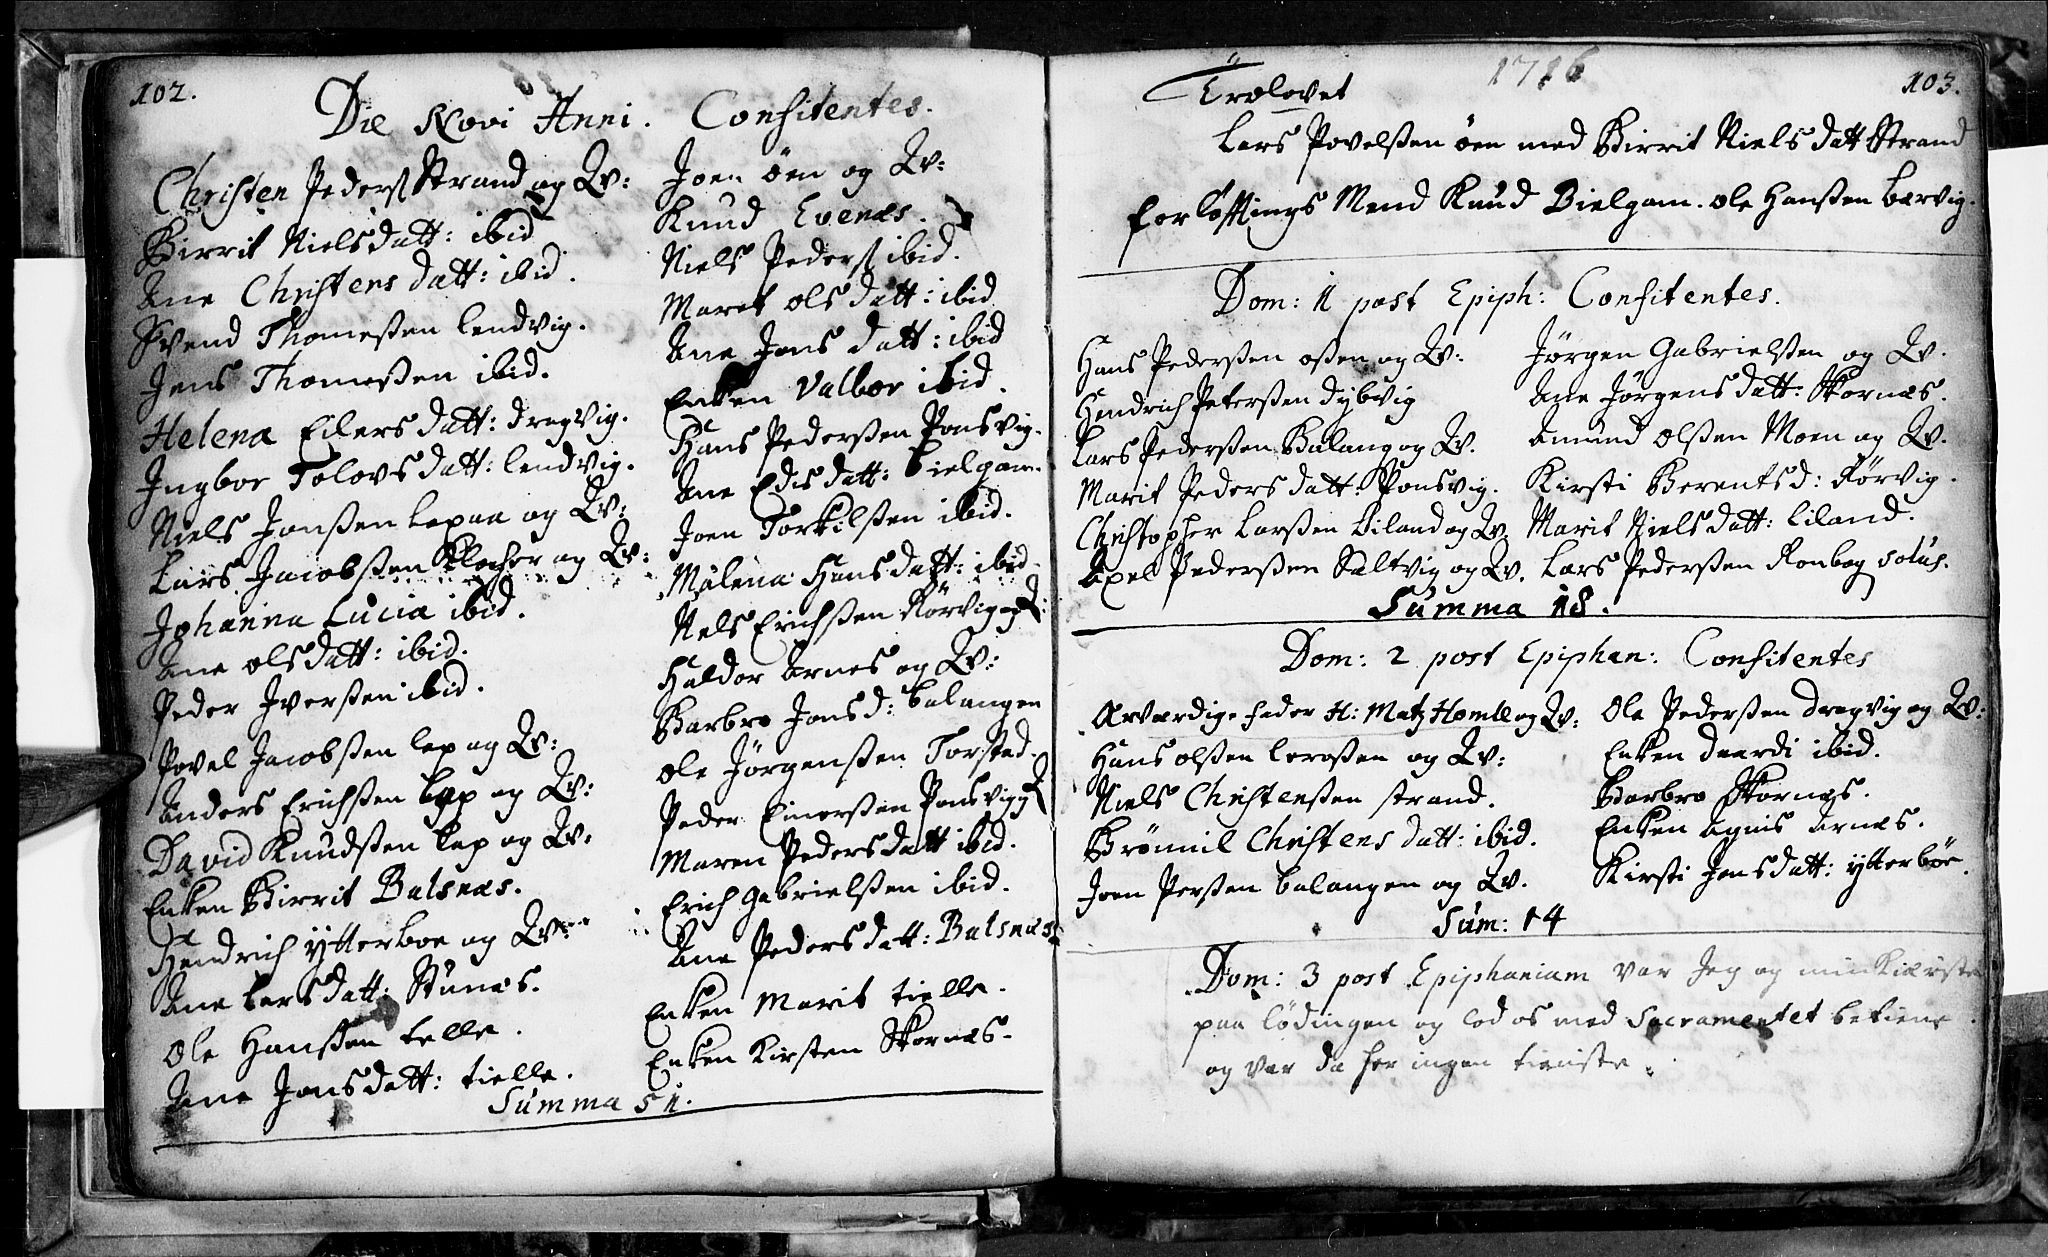 102.
Die Novi Anni. Confitentes.
Christen Peders Strand og Qv:
Birrit Nielsdatt: ibid
Ane Christensdatt: ibid.
Svend Thomeßen lendvig.
Jens Thomeßen ibid.
Helena Eilersdatt: dragvig.
Ingbor Tolovsdatt: lendvig.
Niels Jonßen Lapaa og Qv:
Lars Jacobßen Klocher og Qv:
Johanna Lucia ibid.
Ane olsdatt: ibid.
Peder Iverßen ibid.
Povel Jacobßen lap og Qv:
Anders Erichßen lap og Qv:
David Knudßen lap og Qv:
Enken Birrit Balsnæs.
Hendrich ytterboe og Qv:
Ane Larsdatt: Stunæs.
Ole Hanßen telle.
Ane Jonsdatt: tielle.
Joen öen og Qv:
Knud Evenæs.
Niels Peders ibid.
Maret olsdatt: ibid
Ane Jonsdatt: ibid
Enken Valbor ibid.
Hans Pederßen Ponsvig.
Ane Edisdatt: bielgam.
Joen Torkilßen ibid.
Malena Hansdatt: ibid.
Nels Erichßen Körvig og Q:
Haldor Arnes og Qv:
Barbro Jonsd: balangen
Ole Jörgenßen Torstad.
Peder Einerßen Ponsvig og Q
Maren Pedersdatt ibid.
Erich Gabrielßen ibid.
Ane Pedersdatt: Balsnæs
Enken Marit tielle.
Enken Kirsten Skornæs.
Summa 51.
1716
103.
Trolovet
Lars Povelßen öen med Birrit Nielsdatt Strand
forløftings Mend Knud Bielgam. Ole Hanßen Larvig.
Dom: 1 post Epiph: Confitentes.
Hans Pederßen oßen og Qv:
Hendrich Peterßen dybvig
Lars Pederßen Balang og Qv.
Marit Pedersdatt: Ponsvig.
Christopher Larßen Liland og Qv.
Axel Pederßen Saltvig og Qv.
Jørgen Gabrielßen og Qv.
Ane Jørgensdatt: Skornæs.
Amund olßen Moen og Qv.
Kirsti Berentsd: Körvig.
Marit Nielsdatt: Liland.
Lars Pederßen Ronbog solus.
Summa 18.
Dom: 2 post Epiphan: Confitentes
Ærværdige fader H: Matz Homble og Qv:
Hans olßen leroßen og Qv:
Niels Christenßen strand.
Brönnil Christensdatt: ibid.
Joen Perßen balangen og Qv.
Ole Pederßen dragvig og Qv:
Enken daardi ibid.
Barbro Skornæs.
Enken Agnis arnæs.
Kirsti Jonsdatt: ytterböe.
Sum: 14
Dom: 3 post Epiphaniam var Jeg og min Kiæriste
paa lödingen og lod os med Sacramentet betiene.
og var da her ingen tieniste.